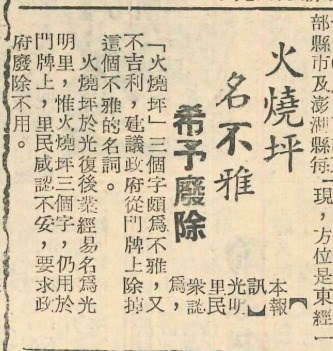 部縣市及澎湖縣每一現,方位是東經一
火燒坪
名不雅
希予廢除
【本報
訊】
光明
里民
衆認
為,
「火燒坪」三個字頗為不雅,又
不吉利,建議政府從門牌上除掉
這個不雅的名詞。
火燒坪於光復後業經易名為光
明里,惟火燒坪三個字,仍用於
門牌上,里民咸認不妥,要求政
府廢除不用。